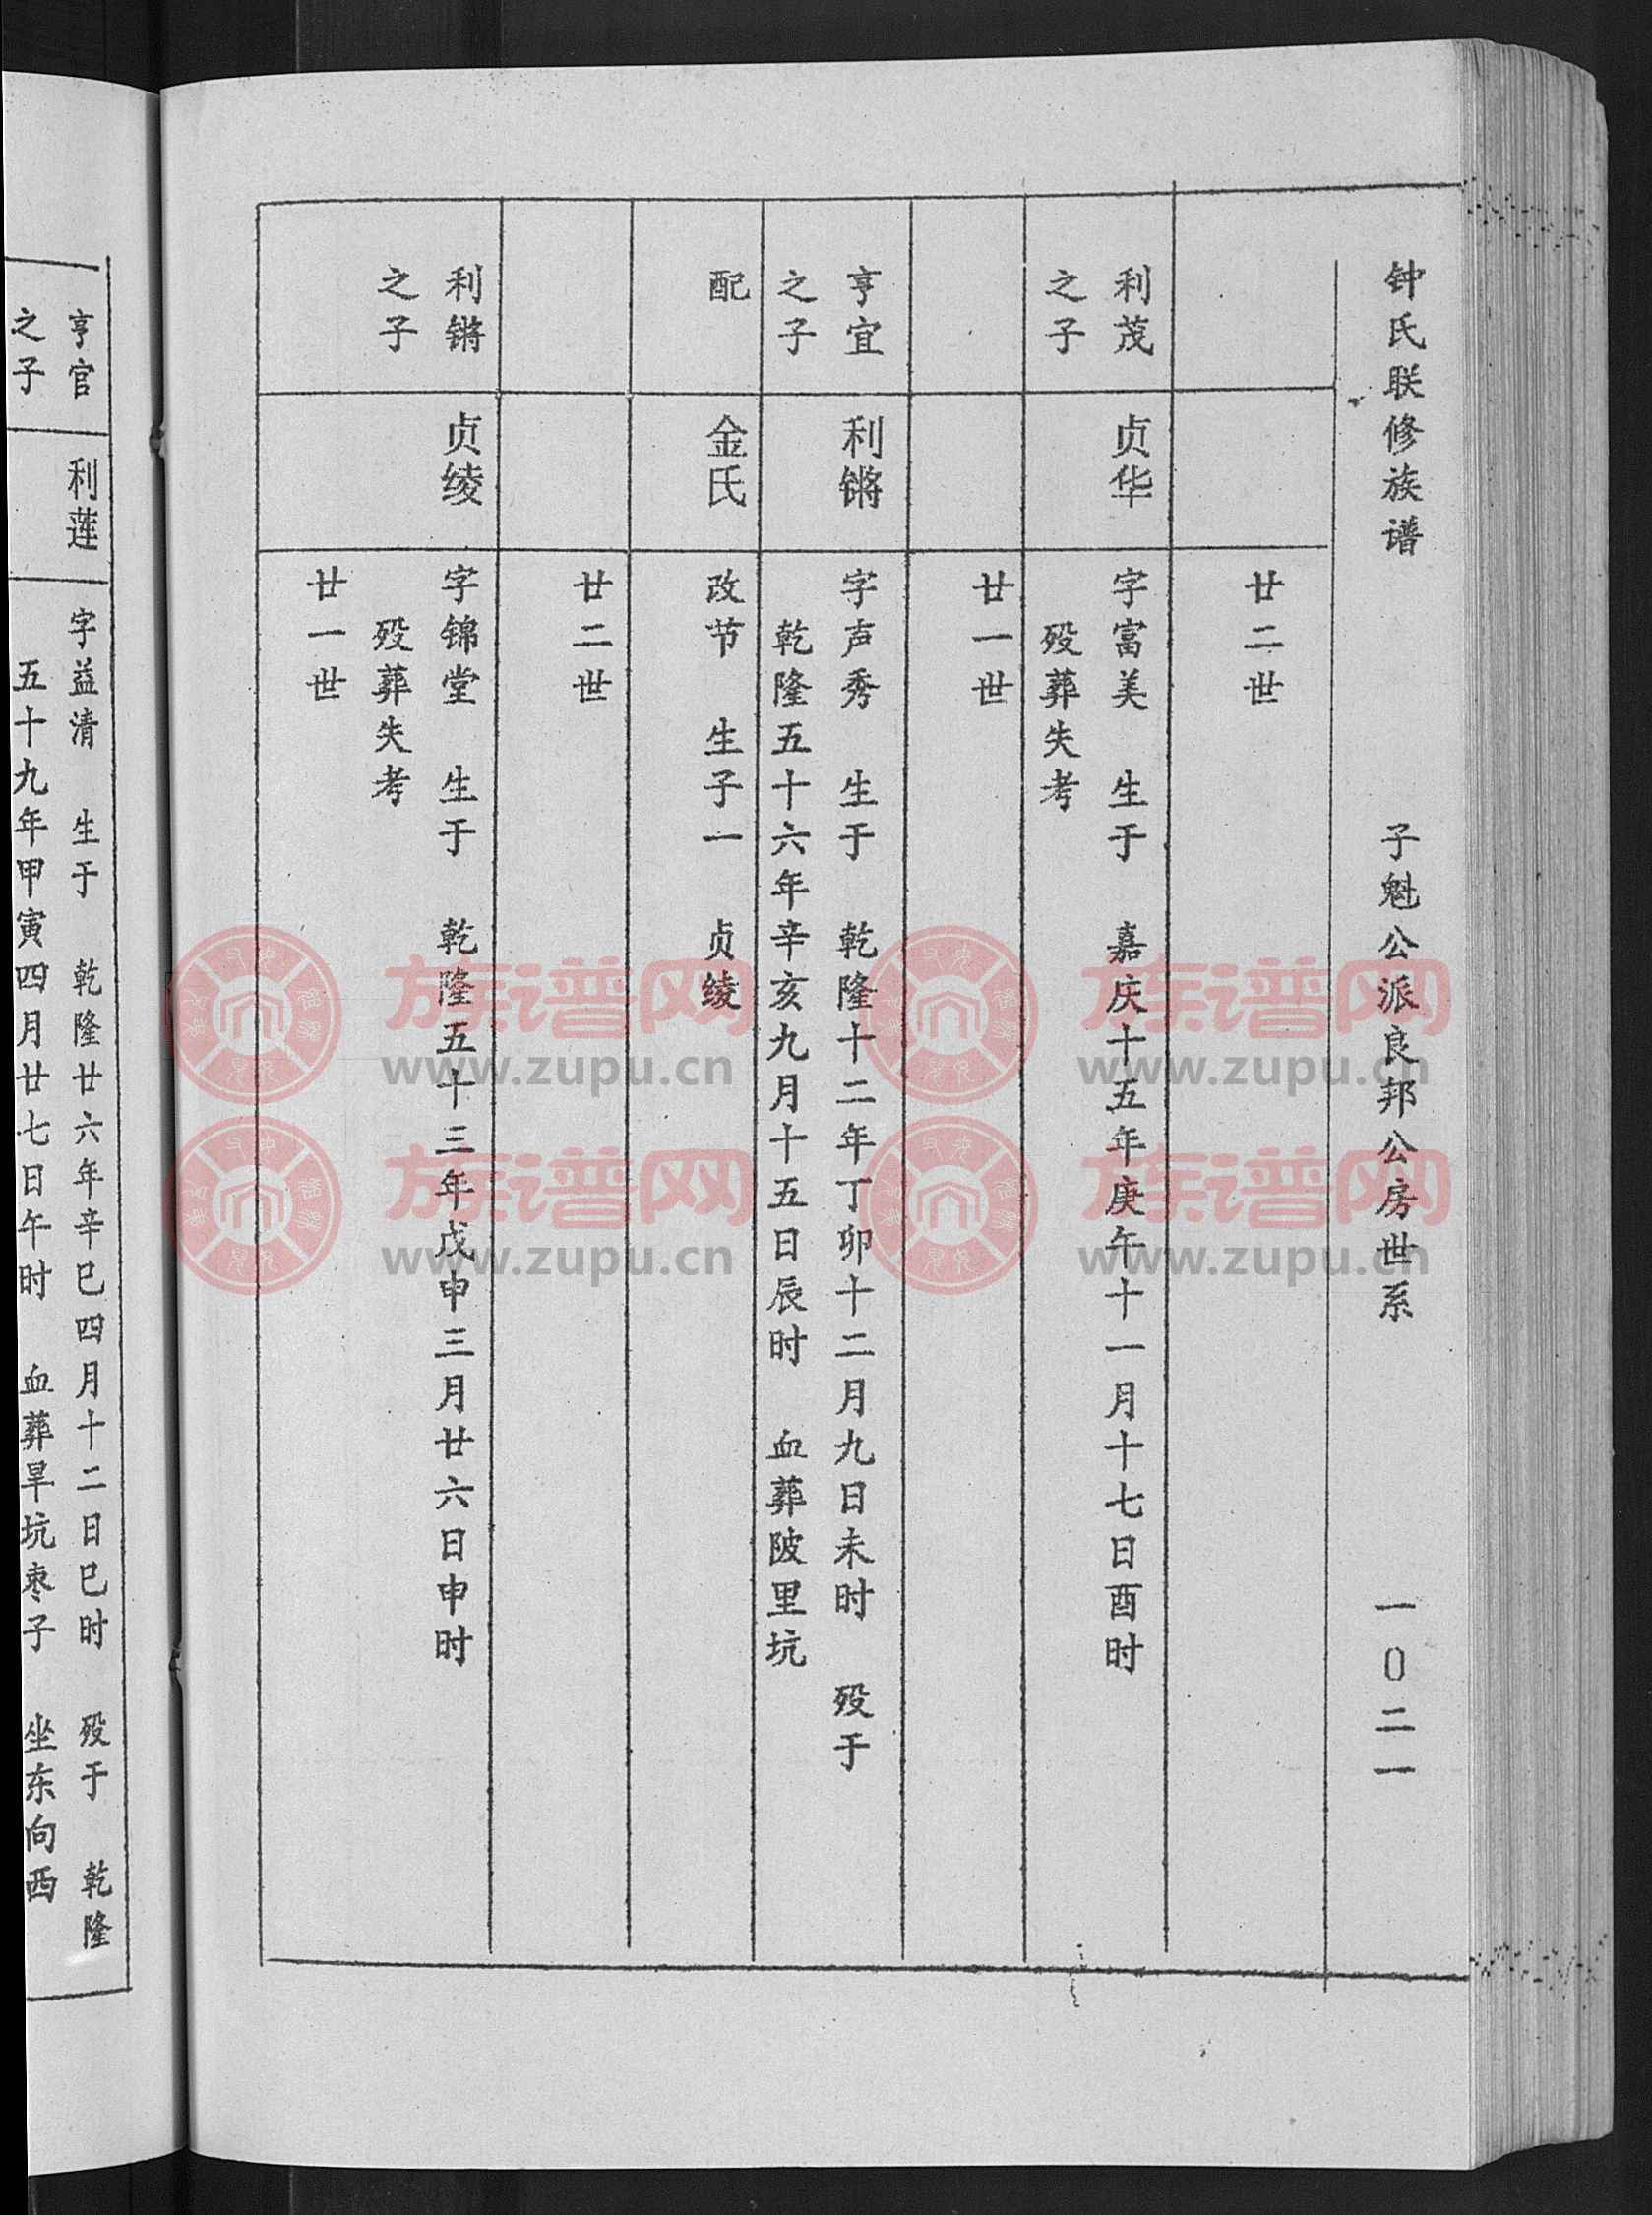 钟氏联修族谱 子魁公派良邦公房世系 一〇二一
廿二世
利茂
之子
贞华
字富美 生于 嘉庆十五年庚午十一月十七日酉时
殁葬失考
廿一世
亨宜
之子
利锵
字声秀 生于 乾隆十二年丁卯十二月九日未时 殁于
乾隆五十六年辛亥九月十五日辰时 血葬陂里坑
配
金氏
改节 生子一 贞绫
廿二世
利锵
之子
贞绫
字锦堂 生于 乾隆五十三年戊申三月廿六日申时
殁葬失考
廿一世
亨官
之子
利莲
字益清 生于 乾隆廿六年辛巳四月十二日巳时 殁于 乾隆
五十九年甲寅四月廿七日午时 血葬旱坑枣子 坐东向西
族谱网
www.zupu.cn
族谱网
www.zupu.cn
族谱网
www.zupu.cn
族谱网
www.zupu.cn